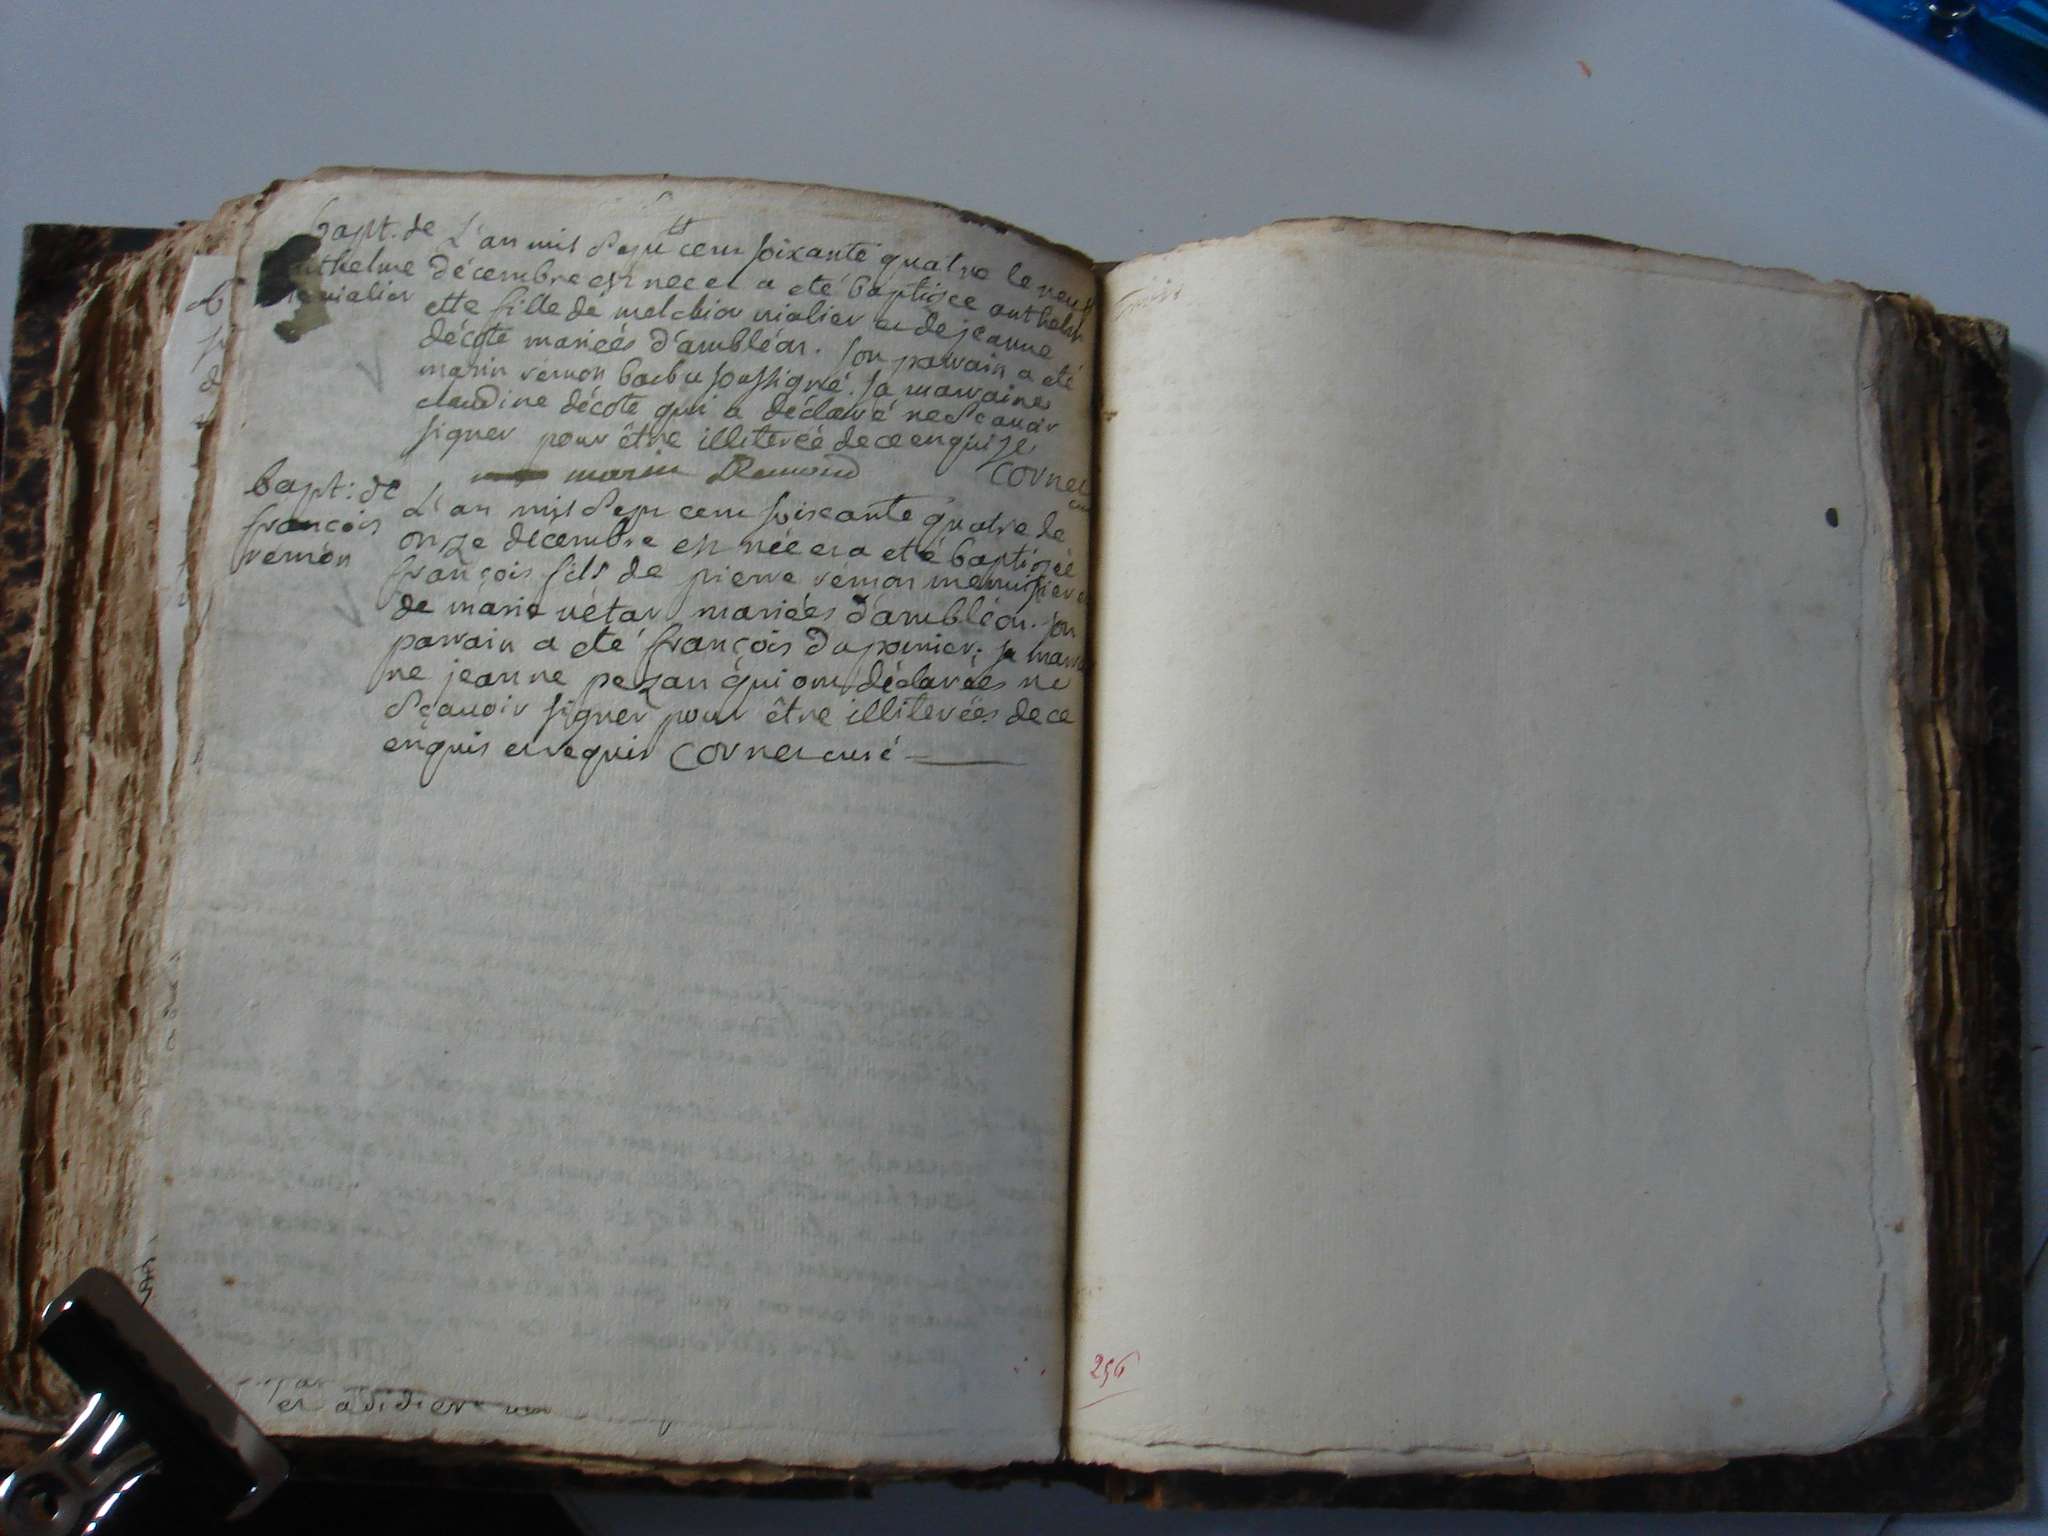 bapt. de
anthelme
vialier
L'an mil sept cent soixante quatre le neuf
décembre est nee et a eté baptisee anthelm
ette fille de melchior vialier et de jeanne
décote mariées d'ambléon. son parrain a eté
marin remon barbu soussigné. sa marraine
claudine décote qui a déclaré ne scavoir
signer pour être illiterée de ce enquise
marin Remond
cornet
bapt: de
françois
rémon
L'an mil sept cent soixante quatre le
onze decembre est née et a eté baptisée
françois fils de pierre rémon menuisier et
de marie vétar mariées d'ambléon. son
parrain a eté françois duponier; sa marrai
ne jeanne pezan qui ont déclarées ne
sçavoir signer pour être illiterées de ce
enquis et requis cornet curé
et a didier
256